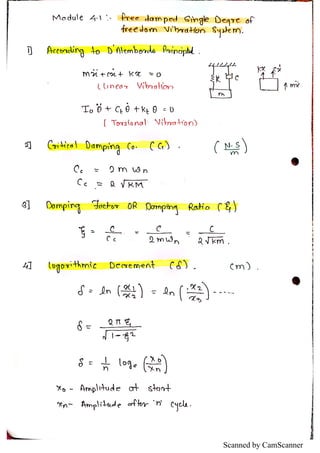 Module 4.1 :- Free damped Single Degre of
freedom Vibration System.
1] According to D'Alemberds Principle.
mẍ + cẋ + kx = 0
( Linear Vibration)
kx cẋ
K C
m
↑ mẍ
I₀ θ̈ + Ct θ̇ + kt θ = 0
[ Torsional Vibration)
2] Critical Damping Co. (Cc) . ( N·S / m )
Cc = 2 m ωn
Cc = 2 √KM
3] Damping Factor OR Damping Ratio ( ξ )
ξ = C / Cc = C / 2 m ωn = C / 2 √km .
4] Logorithmic Decrement (δ) . (m)
δ = ln (x1 / x2) = ln (x2 / x3) -----
δ = 2 π ξ / √1-ξ²
δ = 1/n logₑ (x0 / xn)
x0 - Amplitude at start
xn - Amplitude after 'n' cycle.
Scanned by CamScanner